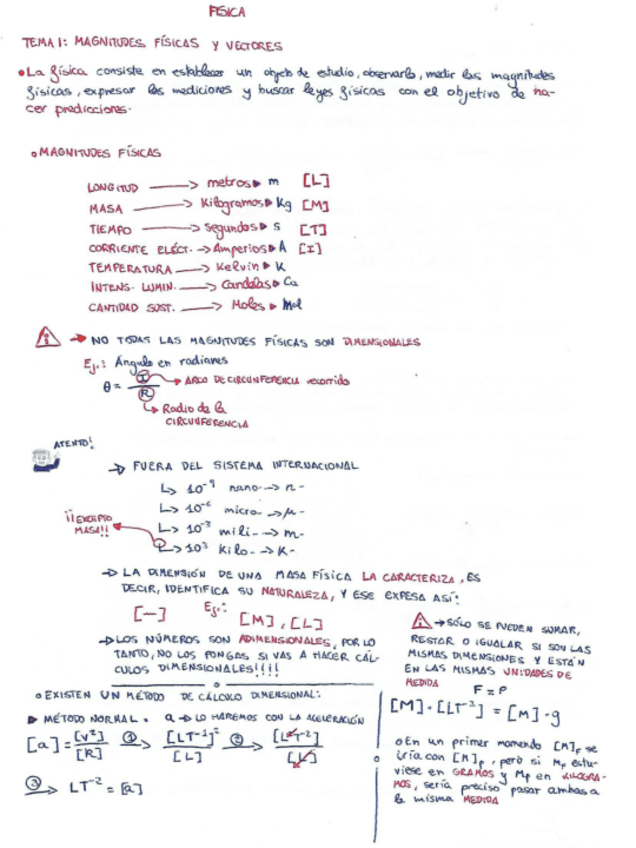 FÍSICA
TEMA 1: MAGNITUDES FÍSICAS Y VECTORES
• La física consiste en establecer un objeto de estudio, observarlo, medir las magnitudes
físicas, expresar las mediciones y buscar leyes físicas con el objetivo de ha-
cer predicciones.
o MAGNITUDES FÍSICAS
LONGITUD → metros ▶ m [L]
MASA → Kilogramos ▶ Kg [M]
TIEMPO → segundos ▶ s [T]
CORRIENTE ELÉCT. → Amperios ▶ A [I]
TEMPERATURA → Kelvin ▶ K
INTENS. LUMIN. → Candelas ▶ Ca
CANTIDAD SUST. → Moles ▶ Mol
→ NO TODAS LAS MAGNITUDES FÍSICAS SON DIMENSIONALES
Ej.: Ángulo en radianes
θ = I / R → ARCO DE CIRCUNFERENCIA recorrido
↳ Radio de la
CIRCUNFERENCIA
ATENTO!
→ FUERA DEL SISTEMA INTERNACIONAL
↳ 10⁻⁹ nano- → n-
↳ 10⁻⁶ micro- → μ-
¡¡EXCEPTO
MASA!!
↳ 10⁻³ mili- → m-
↳ 10³ Kilo- → K-
→ LA DIMENSIÓN DE UNA MASA FÍSICA LA CARACTERIZA, ES
DECIR, IDENTIFICA SU NATURALEZA, Y ESE EXPESA ASÍ:
[—] Ej.: [M], [L]
→ LOS NÚMEROS SON ADIMENSIONALES, POR LO
TANTO, NO LOS PONGAS SI VAS A HACER CÁL-
CULOS DIMENSIONALES!!!!
o EXISTEN UN MÉTODO DE CÁLCULO DIMENSIONAL:
▶ MÉTODO NORMAL. a → LO HAREMOS CON LA ACELERACIÓN
[a] = [V²] / [R] ① → [LT⁻¹]² / [L] ② → [L²T⁻²] / [L]
③ → LT⁻² = [a]
→ SÓLO SE PUEDEN SUMAR,
RESTAR O IGUALAR SI SON LAS
MISMAS DIMENSIONES Y ESTÁN
EN LAS MISMAS UNIDADES DE
MEDIDA
F = P
[M]·[LT⁻²] = [M]·g
o En un primer momento [M]F se
iría con [M]P, pero si MF estu-
viese en GRAMOS y MP en KILOGRA-
MOS, sería preciso pasar ambas a
la misma MEDIDA